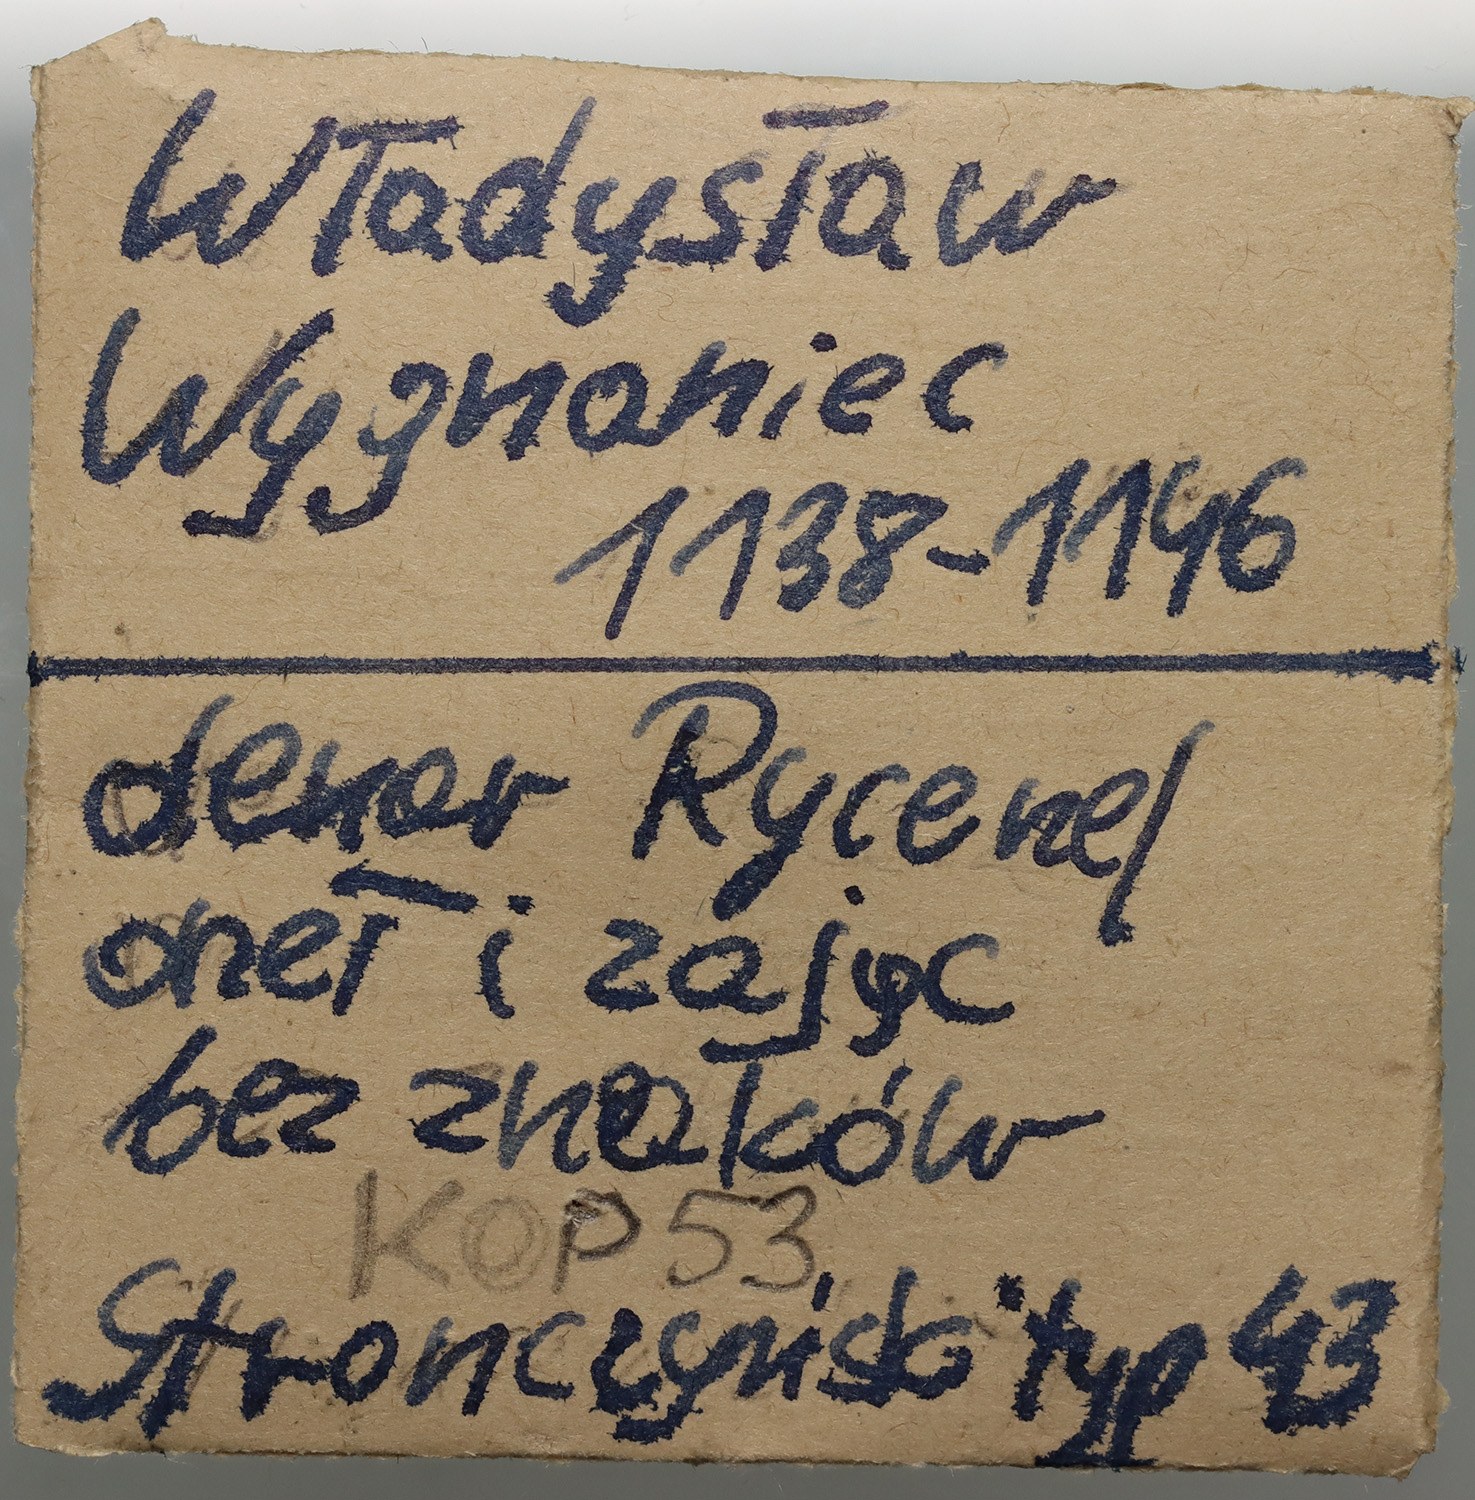 Władysław
Wygnaniec
1138-1146
denar Rycerz/
orzeł i zając
bez znaków
KOP 53
Stronczyński typ 43